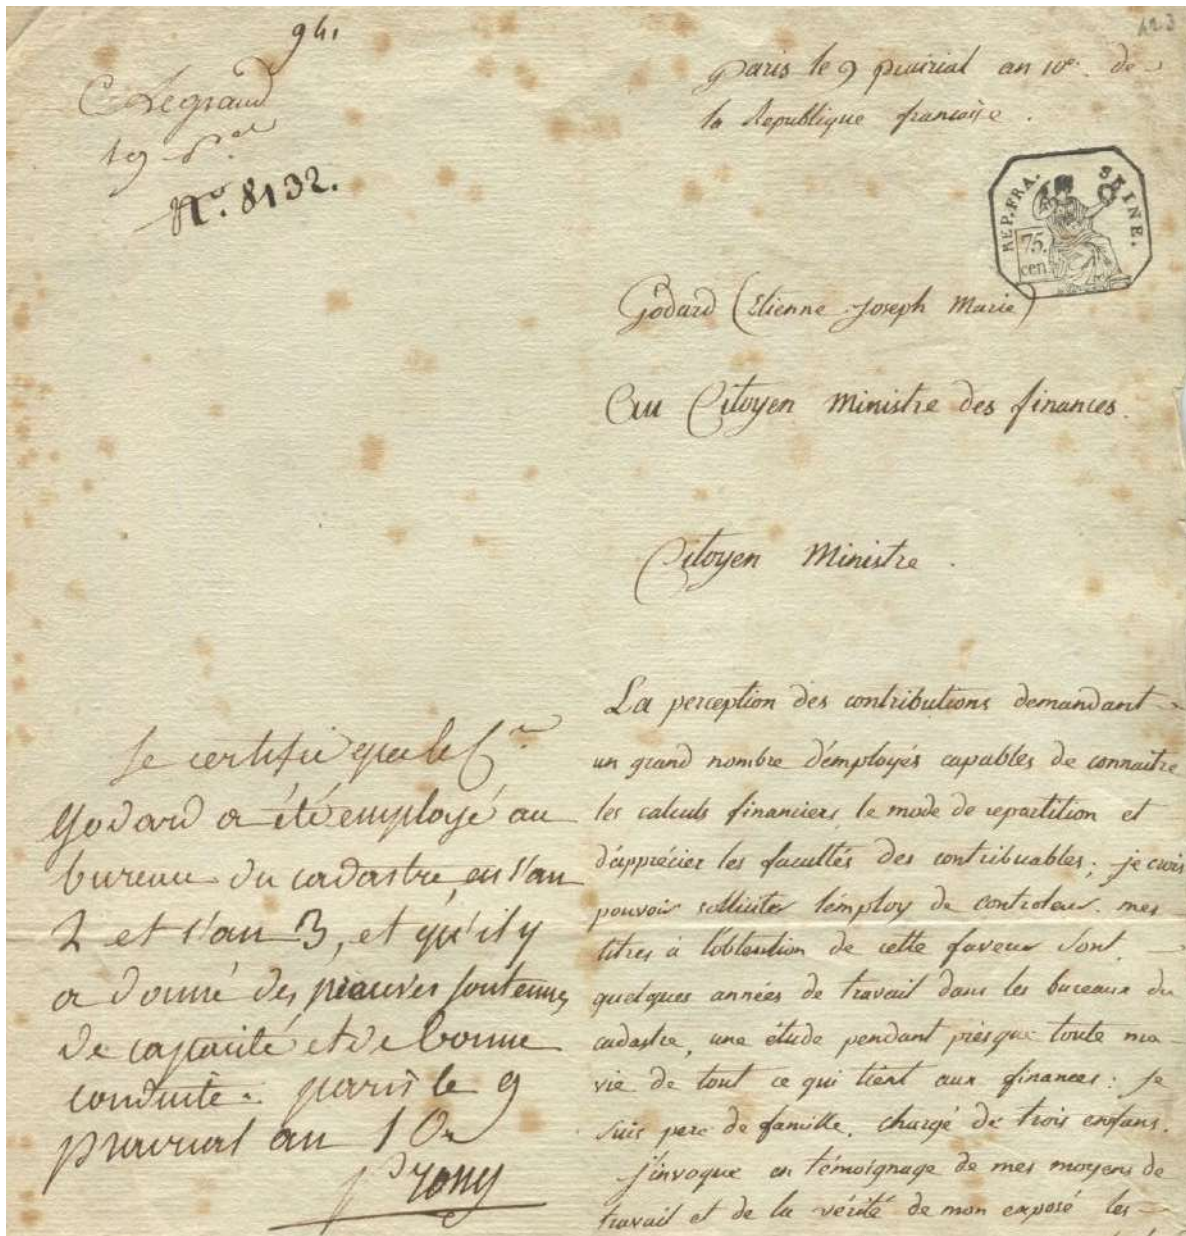 94.
123
C Legrand
19 P.al
N.º 8132.
Paris le 9 prairial an 10e. de
la Republique francaise.
REP. FRA. SEINE.
75.
cen.
Godard (Etienne Joseph Marie)
Au Citoyen Ministre des finances.
Citoyen Ministre.
La perception des contributions demandant
un grand nombre d'employés capables de connaitre
les calculs financiers, le mode de repartition et
d'apprécier les facultés des contribuables; je crois
pouvoir solliciter l'employ de controleur. mes
titres à l'obtention de cette faveur sont,
quelques années de travail dans les bureaux du
cadastre, une étude pendant presque toute ma
vie de tout ce qui tient aux finances: Je
suis pere de famille, chargé de trois enfans.
J'invoque en témoignage de mes moyens de
travail et de la vérité de mon exposé les
Je certifie que le C.en
Godard a été employé au
bureau du cadastre, en l'an
2 et l'an 3, et qu'il y
a donné des preuves soutenues
de capacité et de bonne
conduite. paris le 9
prairial an 10e
Prony